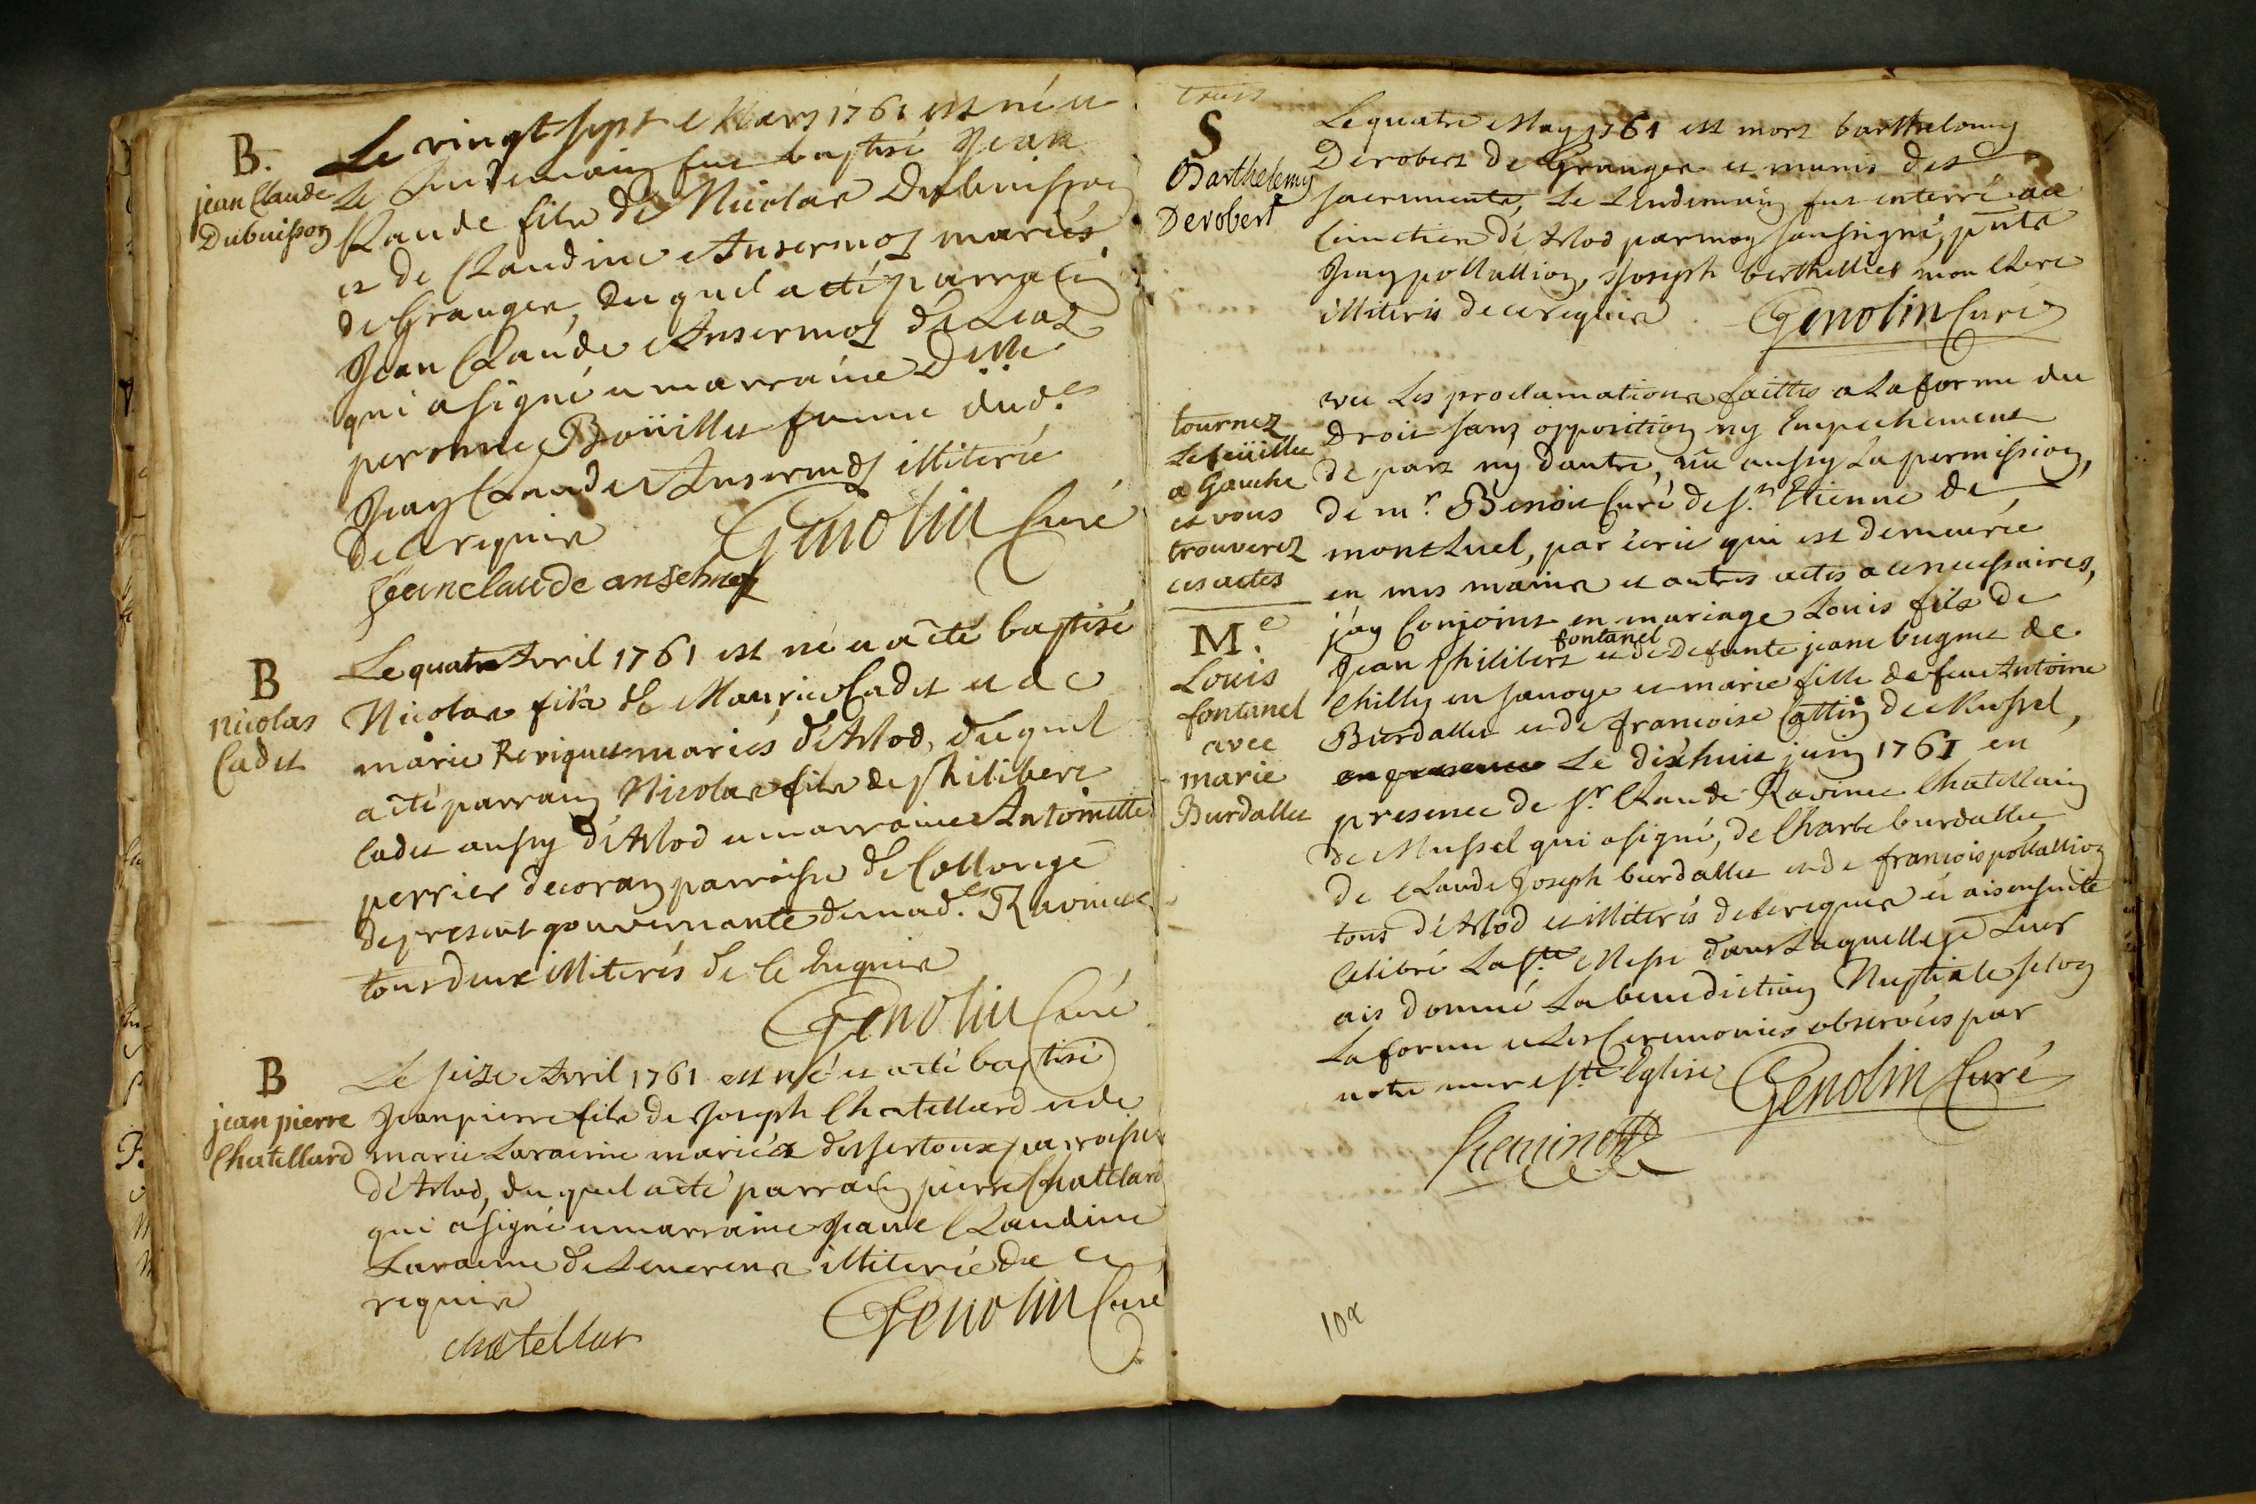 B.
jean Claude
Dubuisson
Le vingt sept Mars 1761 est né et
Le lendemain fut baptisé Jean
Claude fils de Nicolas Dubuisson
et de Claudine Ansermoz mariés
de Granges, duquel a été parrain
Jean Claude Ansermoz de Leaz
qui a signé et marraine Dlle
peronne Boüillet femme dud.
Jean Claude Ansermoz illiterée
de ce requise Genolin Curé
Jeanclaude anselmoz
B
nicolas
Cadet
Le quatre Avril 1761 est né et a été baptisé
Nicolas fils de Maurice Cadet et de
marie Reviquet mariés d'Arlod, duquel
a été parrain Nicolas fils de philibert
Cadet aussy d'Arlod et marraine Antoinette
perrier decoran parroisse de Collonge
de present gouvernante de mad.e Ravinet
tous deux illiterés de ce requis
Genolin Curé
B
jean pierre
Chatellard
Le seize Avril 1761 est né et a été baptisé
Jean pierre fils de Joseph Chatellard et de
marie Laracine mariés d'essertoux parroisse
d'Arlod, duquel a été parrain pierre Chatelard
qui a signé et marraine Jeane Claudine
Laracine de illiterée de ce
requise
Genolin Curé
chatellar
S
Barthelemy
Derobert
Le quatre May 1761 est mort barthelemy
Derobert de Granges et munis des
sacrements, Le Lendemain fut enterré au
Cimetiere d'Arlod par moy soussigné, pnts
Jean pollallion, Joseph berthillier mon clerc
illiteris de ce requis
Genolin Curé
tournez
Lefeüillee
a Gauche
et vous
trouverez
ces actes
M.e
Louis
fontanel
avec
marie
Burdallet
vu Les proclamations faittes a La forme du
Droit sans opposition ny Empechement
de part ny dautre, vû aussy La permission,
de mr. Benoit Curé de st. Etienne de
montluel, par écrit qui est demeurée
en mes mains et autres actes a ce necessaires,
j'ay Conjoint en mariage Louis fils de
Jean philibert fontanel et de defunte jeane bugnet de
Chilly en savoye et marie fille de feu Antoine
Burdallet et de francoise Cattin de Mussel,
en presence Le dixhuit juin 1761 en
presence de sr. Claude Ravinet Chatellain
de Mussel qui a signé, de Charle burdallet
de Claude Joseph burdallet et de francois pollallion
tous d'Arlod et illiterés de ce requis et ais ensuitte
Celebré La ste. Messe dans Laquelle je Leur
ais donné La benediction Nuptiale selon
La forme et les Ceremonies observées par
notre mere ste Eglise Genolin Curé